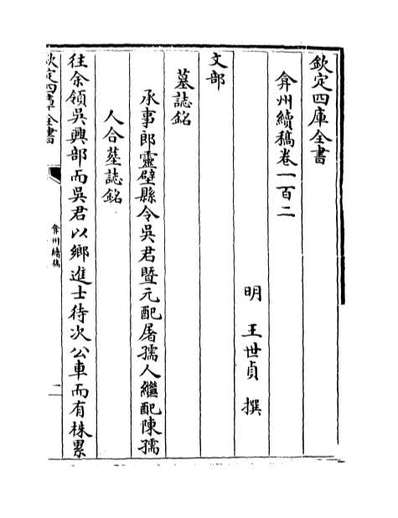 欽定四庫全書
弇州續稿卷一百二
明 王世貞 撰
文部
墓誌銘
承事郎靈璧縣令吳君暨元配屠孺人繼配陳孺
人合墓誌銘
往余領吳興部而吳君以鄉進士待次公車而有株累
欽定四庫全書
弇州續稿